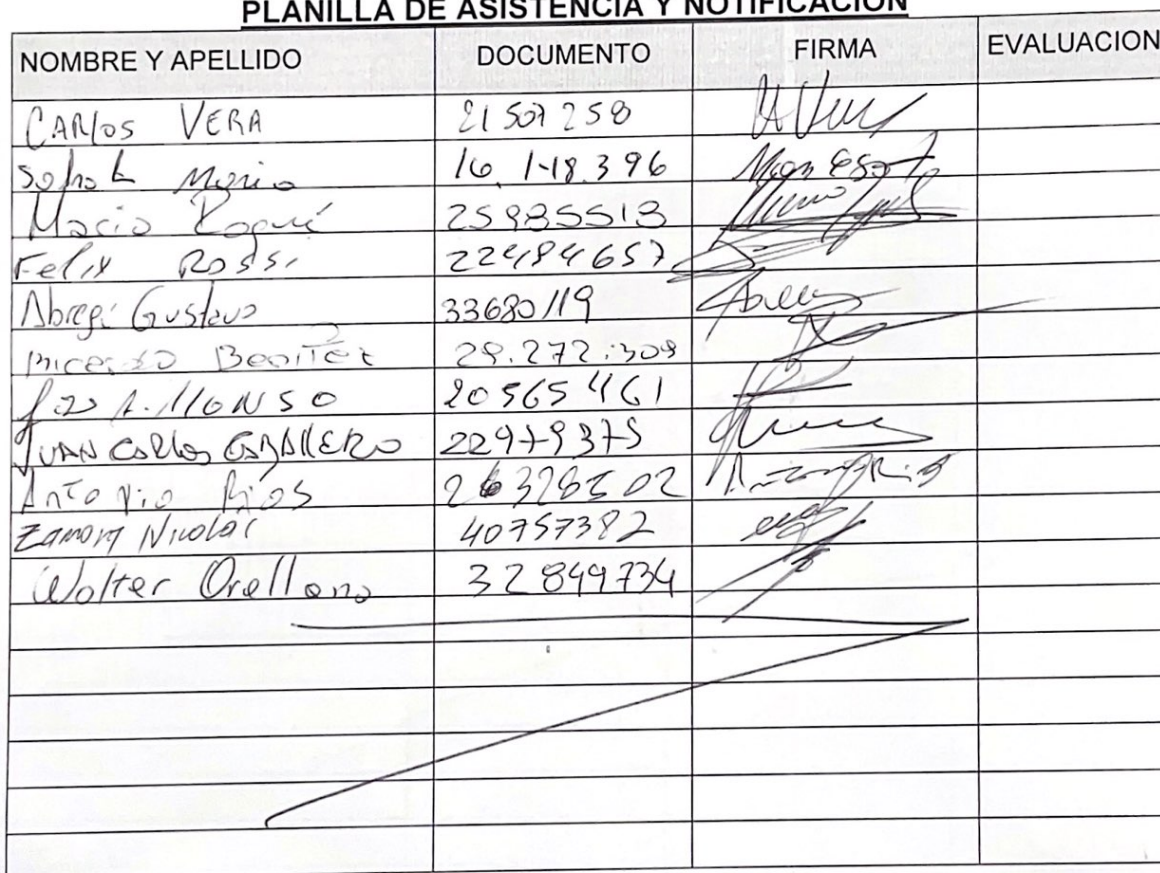 PLANILLA DE ASISTENCIA Y NOTIFICACION
NOMBRE Y APELLIDO DOCUMENTO FIRMA EVALUACION
CARlos VERA 21507258
Mario
Mario Roqué 25935513
Felix Rossi 22484657
Abregi Gustavo 33680119
Benitez 29.272.309
20565461
JUAN CARlos CABAllERO 22979375
Antonio Ríos 26328502
Zamora Nicolas 40757382
Walter Orellano 32849734